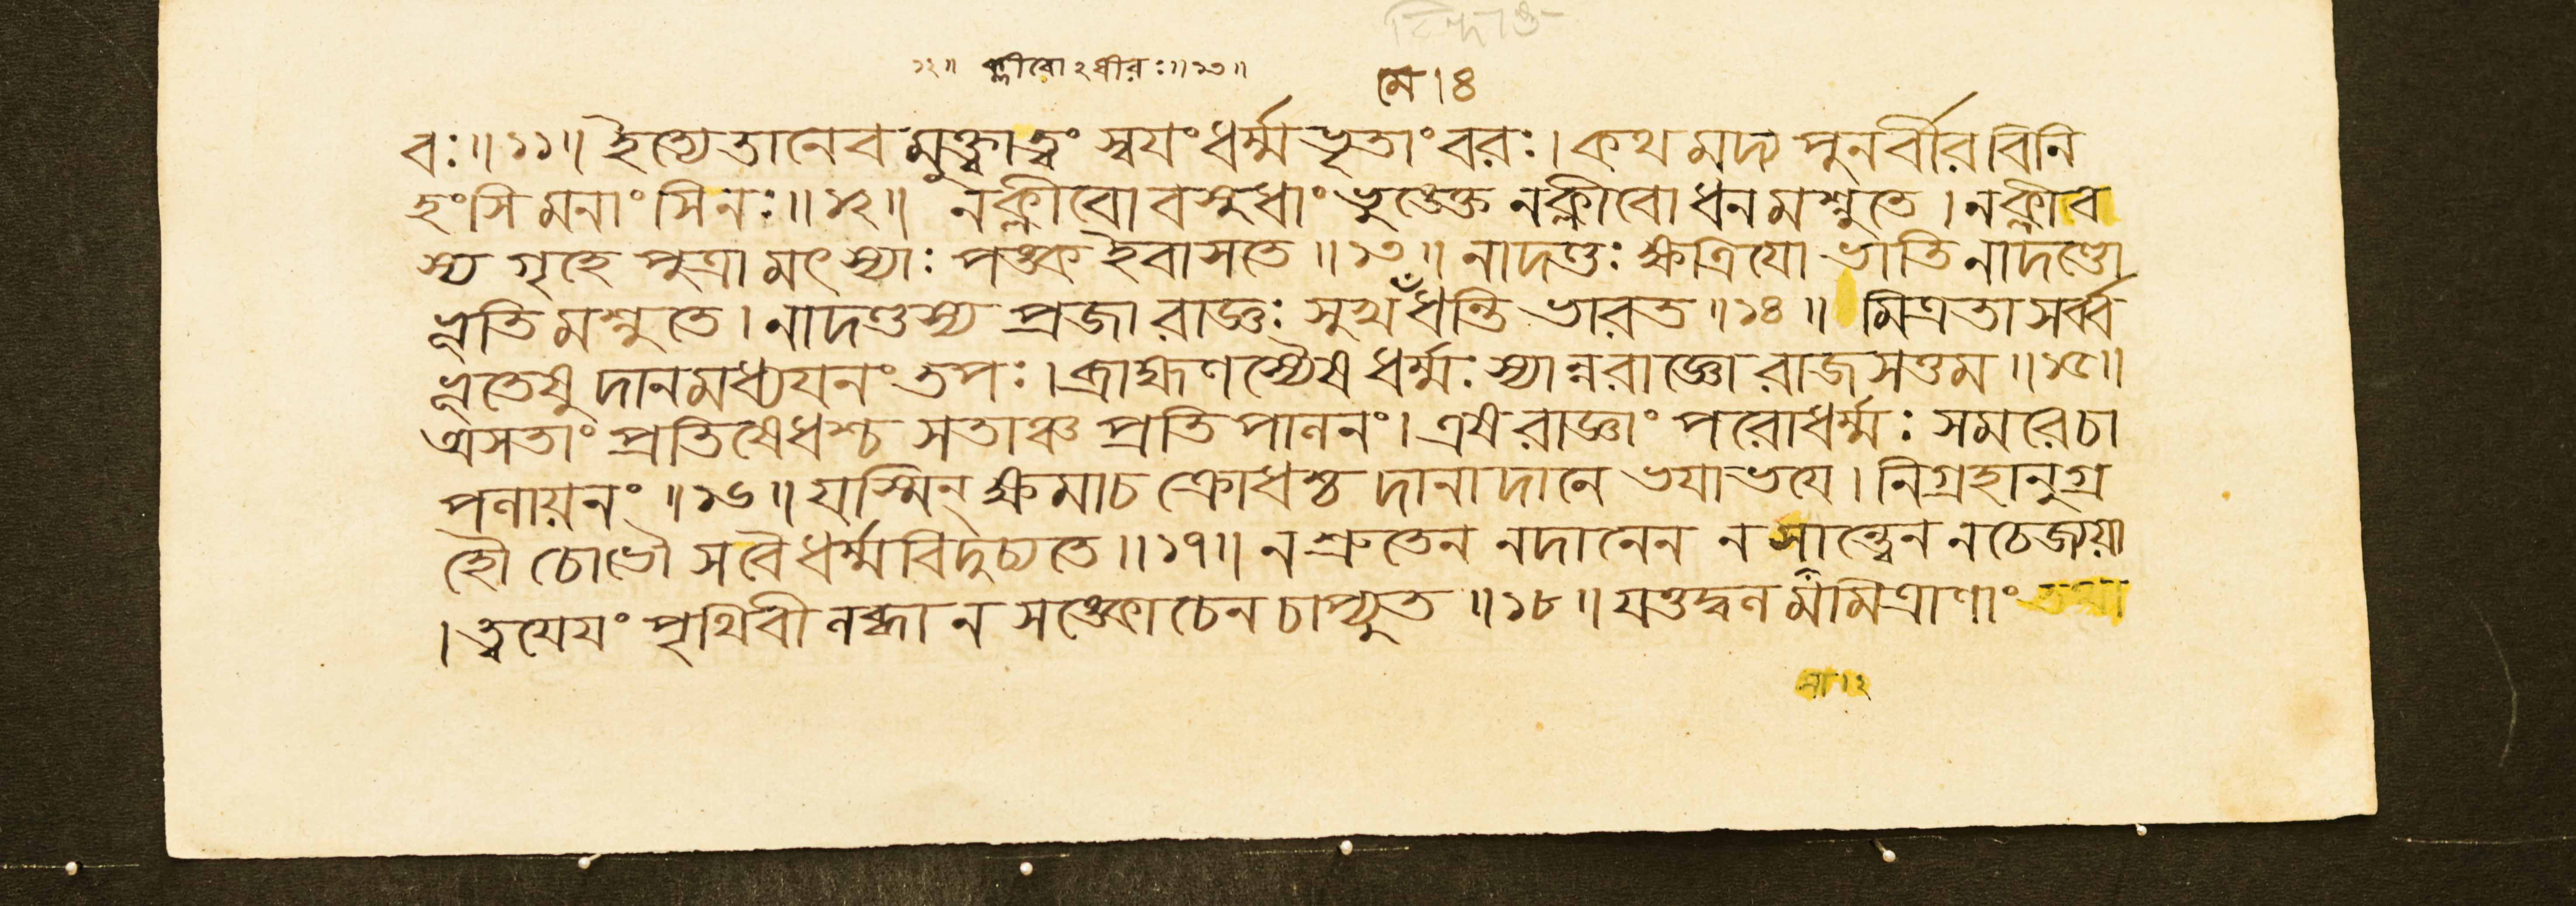 ১২॥ ক্লীবোঽধীরঃ॥১৩॥
মে।৪
বঃ॥১১॥ ইত্যেতানেব মুক্ত্বাত্বং স্বযংধর্ম্মভৃতাংবরঃ।কথমদ্য পুনর্বীর বিনি
হংসি মনাংসি নঃ॥১২॥ নক্লীবো বসুধাং ভুঙেক্ত নক্লীবো ধনমশ্নুতে।নক্লীব
স্য গৃহে পুত্রা মৎস্যাঃ পঙ্ক ইবাসতে॥১৩॥ নাদণ্ডঃ ক্ষত্রিযো ভাতি নাদণ্ডো
ভূতিমশ্নুতে।নাদণ্ডস্য প্রজা রাজ্ঞঃ সুখমেধন্তি ভারত॥১৪॥ মিত্রতা সর্ব্ব
ভূতেষু দানমধ্যযনং তপঃ।ব্রাহ্মণস্যৈষ ধর্ম্মঃ স্যান্নরাজ্ঞো রাজসত্তম॥১৫॥
অসতাং প্রতিষেধশ্চ সতাঞ্চ প্রতিপাণনং।এষরাজ্ঞাং পরোধর্ম্মঃ সমরেচা
পণায়নং॥১৬॥ যস্মিন্ ক্ষমাচ ক্রোধশ্চ দানাদানে ভযাভযে।নিগ্রহানুগ্র
হৌ চোভৌ সবৈ ধর্ম্মবিদুচ্যতে॥১৭॥ নশ্রুতেন নদানেন ন সান্ত্বেন নচেজ্যয়া
।ত্বযেযং পৃথিবী ণব্ধা ন সঙ্কোচেন চাপ্যুত॥১৮॥ যত্তদ্বণমমিত্রাণাং তথা
না।২